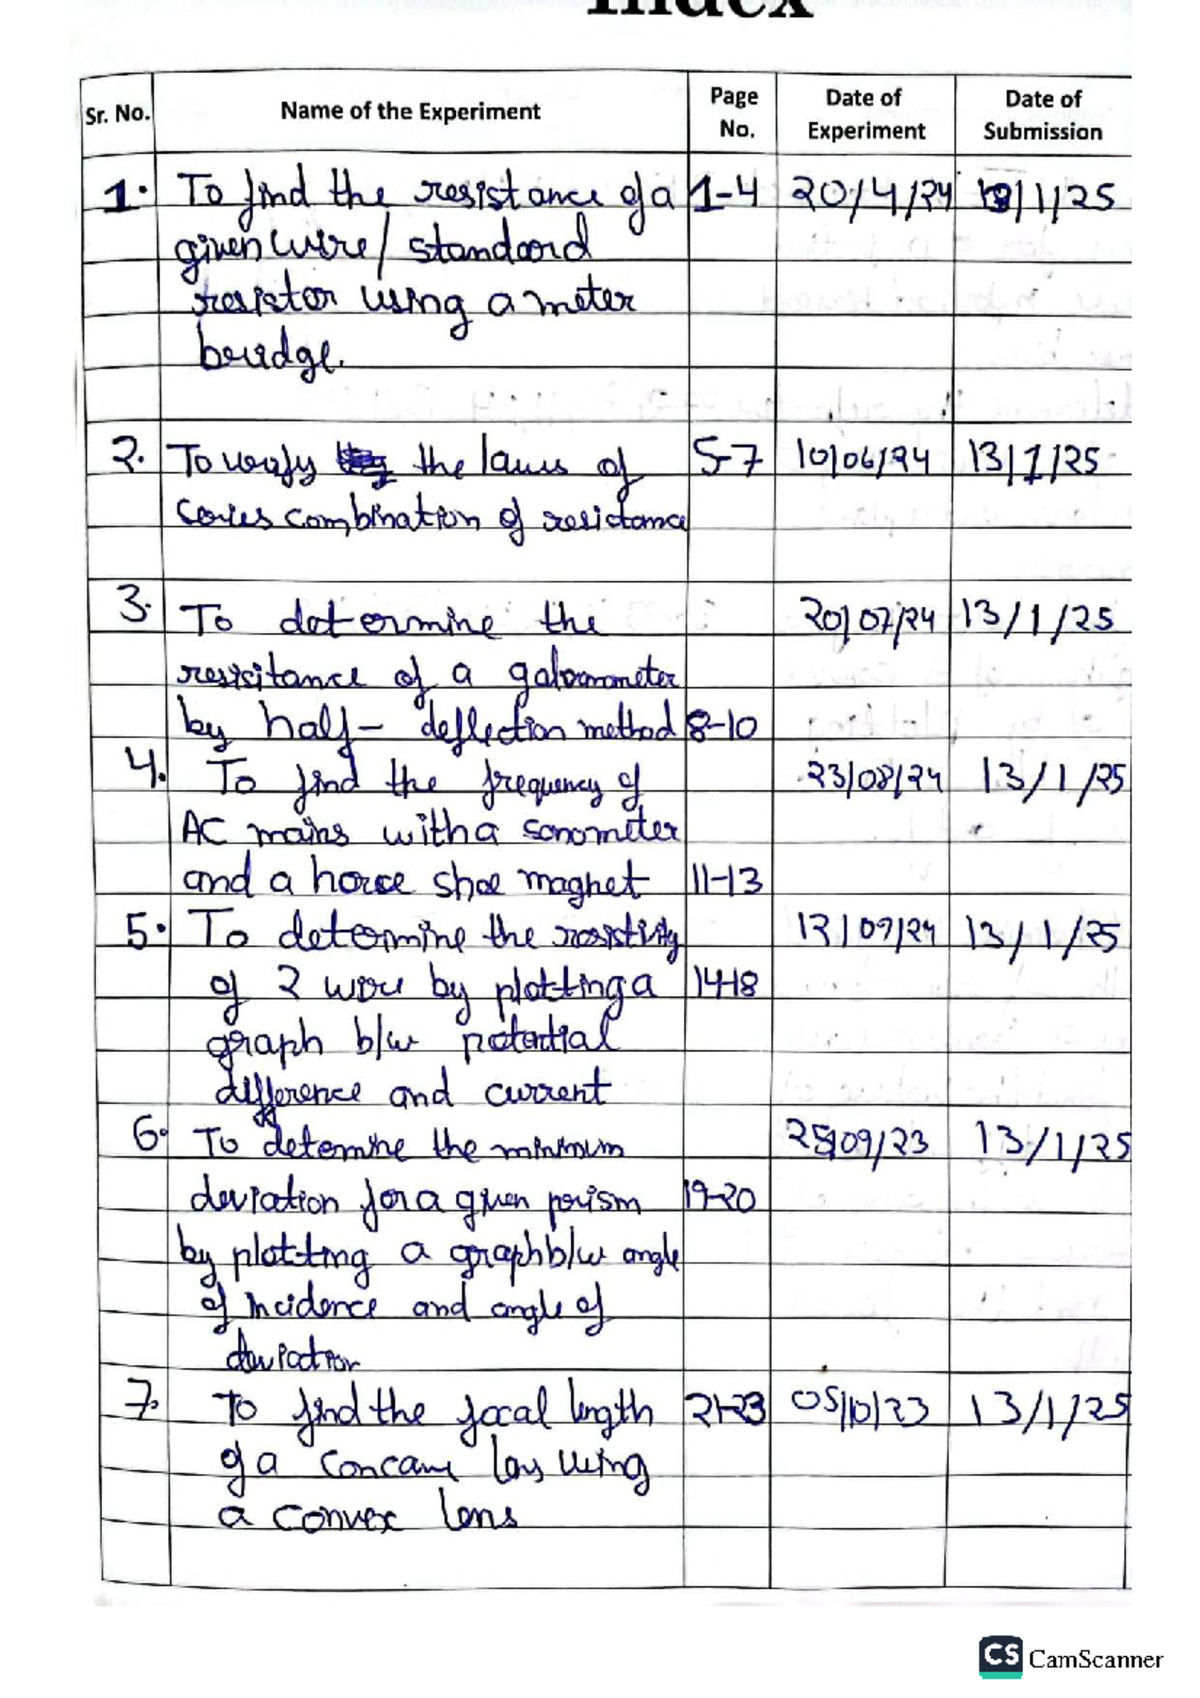 Index
Sr. No. Name of the Experiment Page No. Date of Experiment Date of Submission
1. To find the resistance of a 1-4 20/4/24 13/1/25
given wire/ standard
resistor using a meter
bridge.
2. To verify the laws of 5-7 10/06/24 13/1/25
series combination of resistance
3. To determine the 20/07/24 13/1/25
resisitance of a galvanometer
by half- deflection method 8-10
4. To find the frequency of 23/08/24 13/1/25
AC mains with a sonometer
and a horse shoe magnet 11-13
5. To determine the resistivity 12/09/24 13/1/25
of 2 wire by plotting a 14-18
graph b/w potential
difference and current
6. To detemine the minimum 25/09/23 13/1/25
deviation for a given prism 19-20
by plotting a graph b/w angle
of incidence and angle of
deviation
7. To find the focal length 21-23 05/10/23 13/1/25
of a concave lens using
a convex lens
CS CamScanner